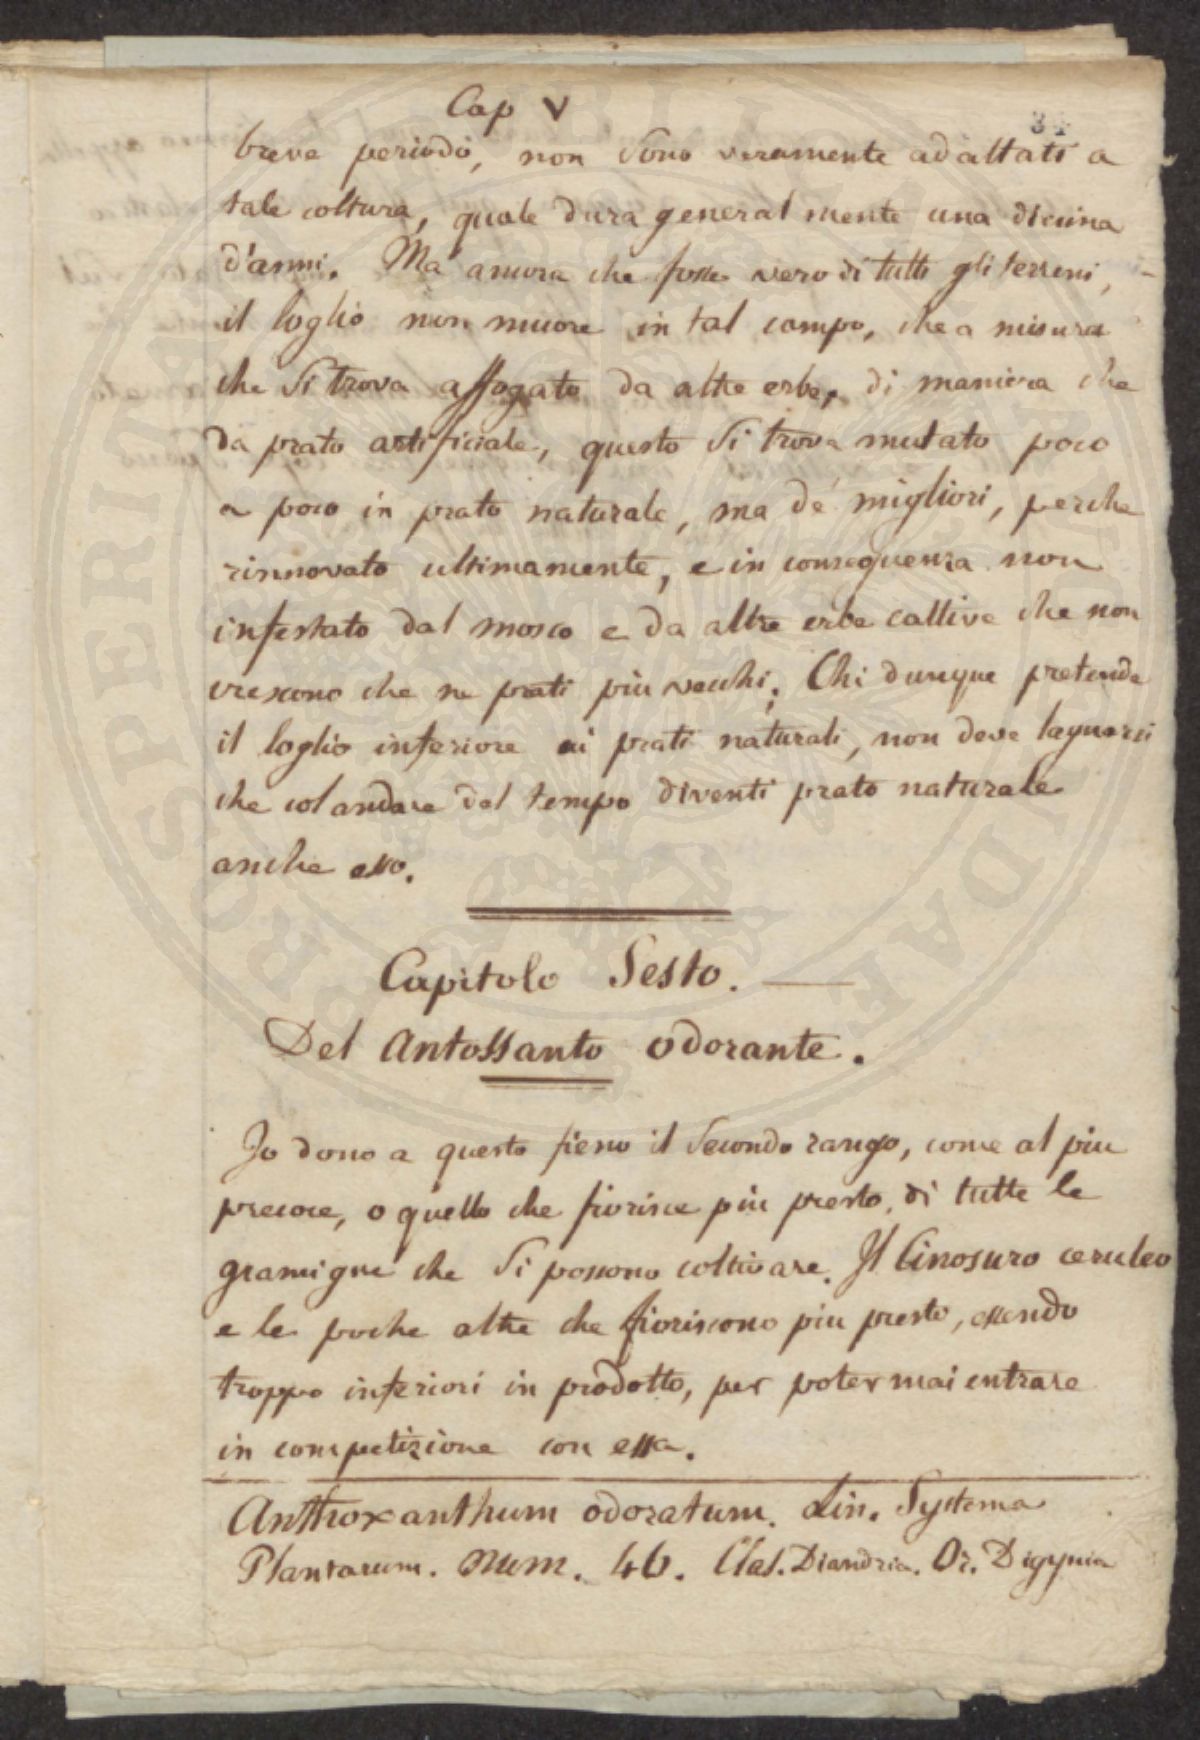 Cap V
34
breve periodo, non sono veramente adattati a
tale coltura, quale dura generalmente una dicina
d'anni. Ma ancora che fosse vero di tutti gli terreni,
il loglio non muore in tal campo, che a misura
che si trova affogato da altre erbe, di maniera che
da prato artificiale, questo si trova mutato poco
a poco in prato naturale, ma de' migliori, perche
rinnovato ultimamente, e in consequenza non
infestato dal mosco e da altre erbe cattive che non
crescono che ne prati piu vecchi. Chi dunque pretende
il loglio inferiore ai prati naturali, non deve lagnarsi
che col andare del tempo diventi prato naturale
anche esso.
Capitolo Sesto.
Del Antossanto odorante.
Io dono a questo fieno il secondo rango, come al piu
precoce, o quello che fiorisce piu presto, di tutte le
gramigne che si possono coltivare. Il Cinosuro ceruleo
e le poche altre che fioriscono piu presto, essendo
troppo inferiori in prodotto, per poter mai entrare
in competizione con essa.
Anthoxanthum odoratum. Lin. Systema
Plantarum. Num. 46. Clas. Diandria. Or. Digynia
PROSPERITATI PUBLICAE AUGENDAE